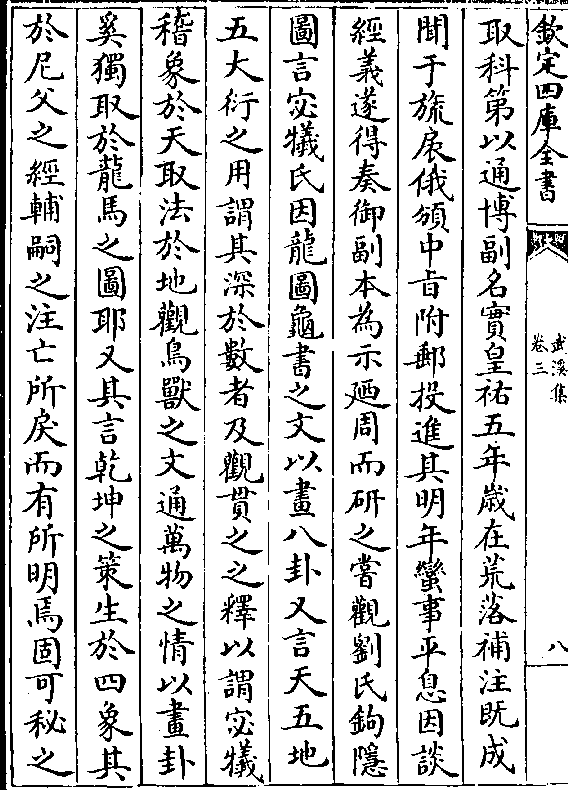 欽定四庫全書
武溪集
卷三
八
取科第以通博副名實皇祐五年歲在荒落補注既成
聞于旒扆俄頒中旨附郵投進其明年蠻事平息因談
經義遂得奏御副本為示廼周而研之嘗觀劉氏鉤隱
圖言宓犧氏因龍圖龜書之文以畫八卦又言天五地
五大衍之用謂其深於數者及觀貫之之釋以謂宓犧
稽象於天取法於地觀鳥獸之文通萬物之情以畫卦
奚獨取於龍馬之圖耶又其言乾坤之策生於四象其
於尼父之經輔嗣之注亡所戾而有所明焉固可秘之